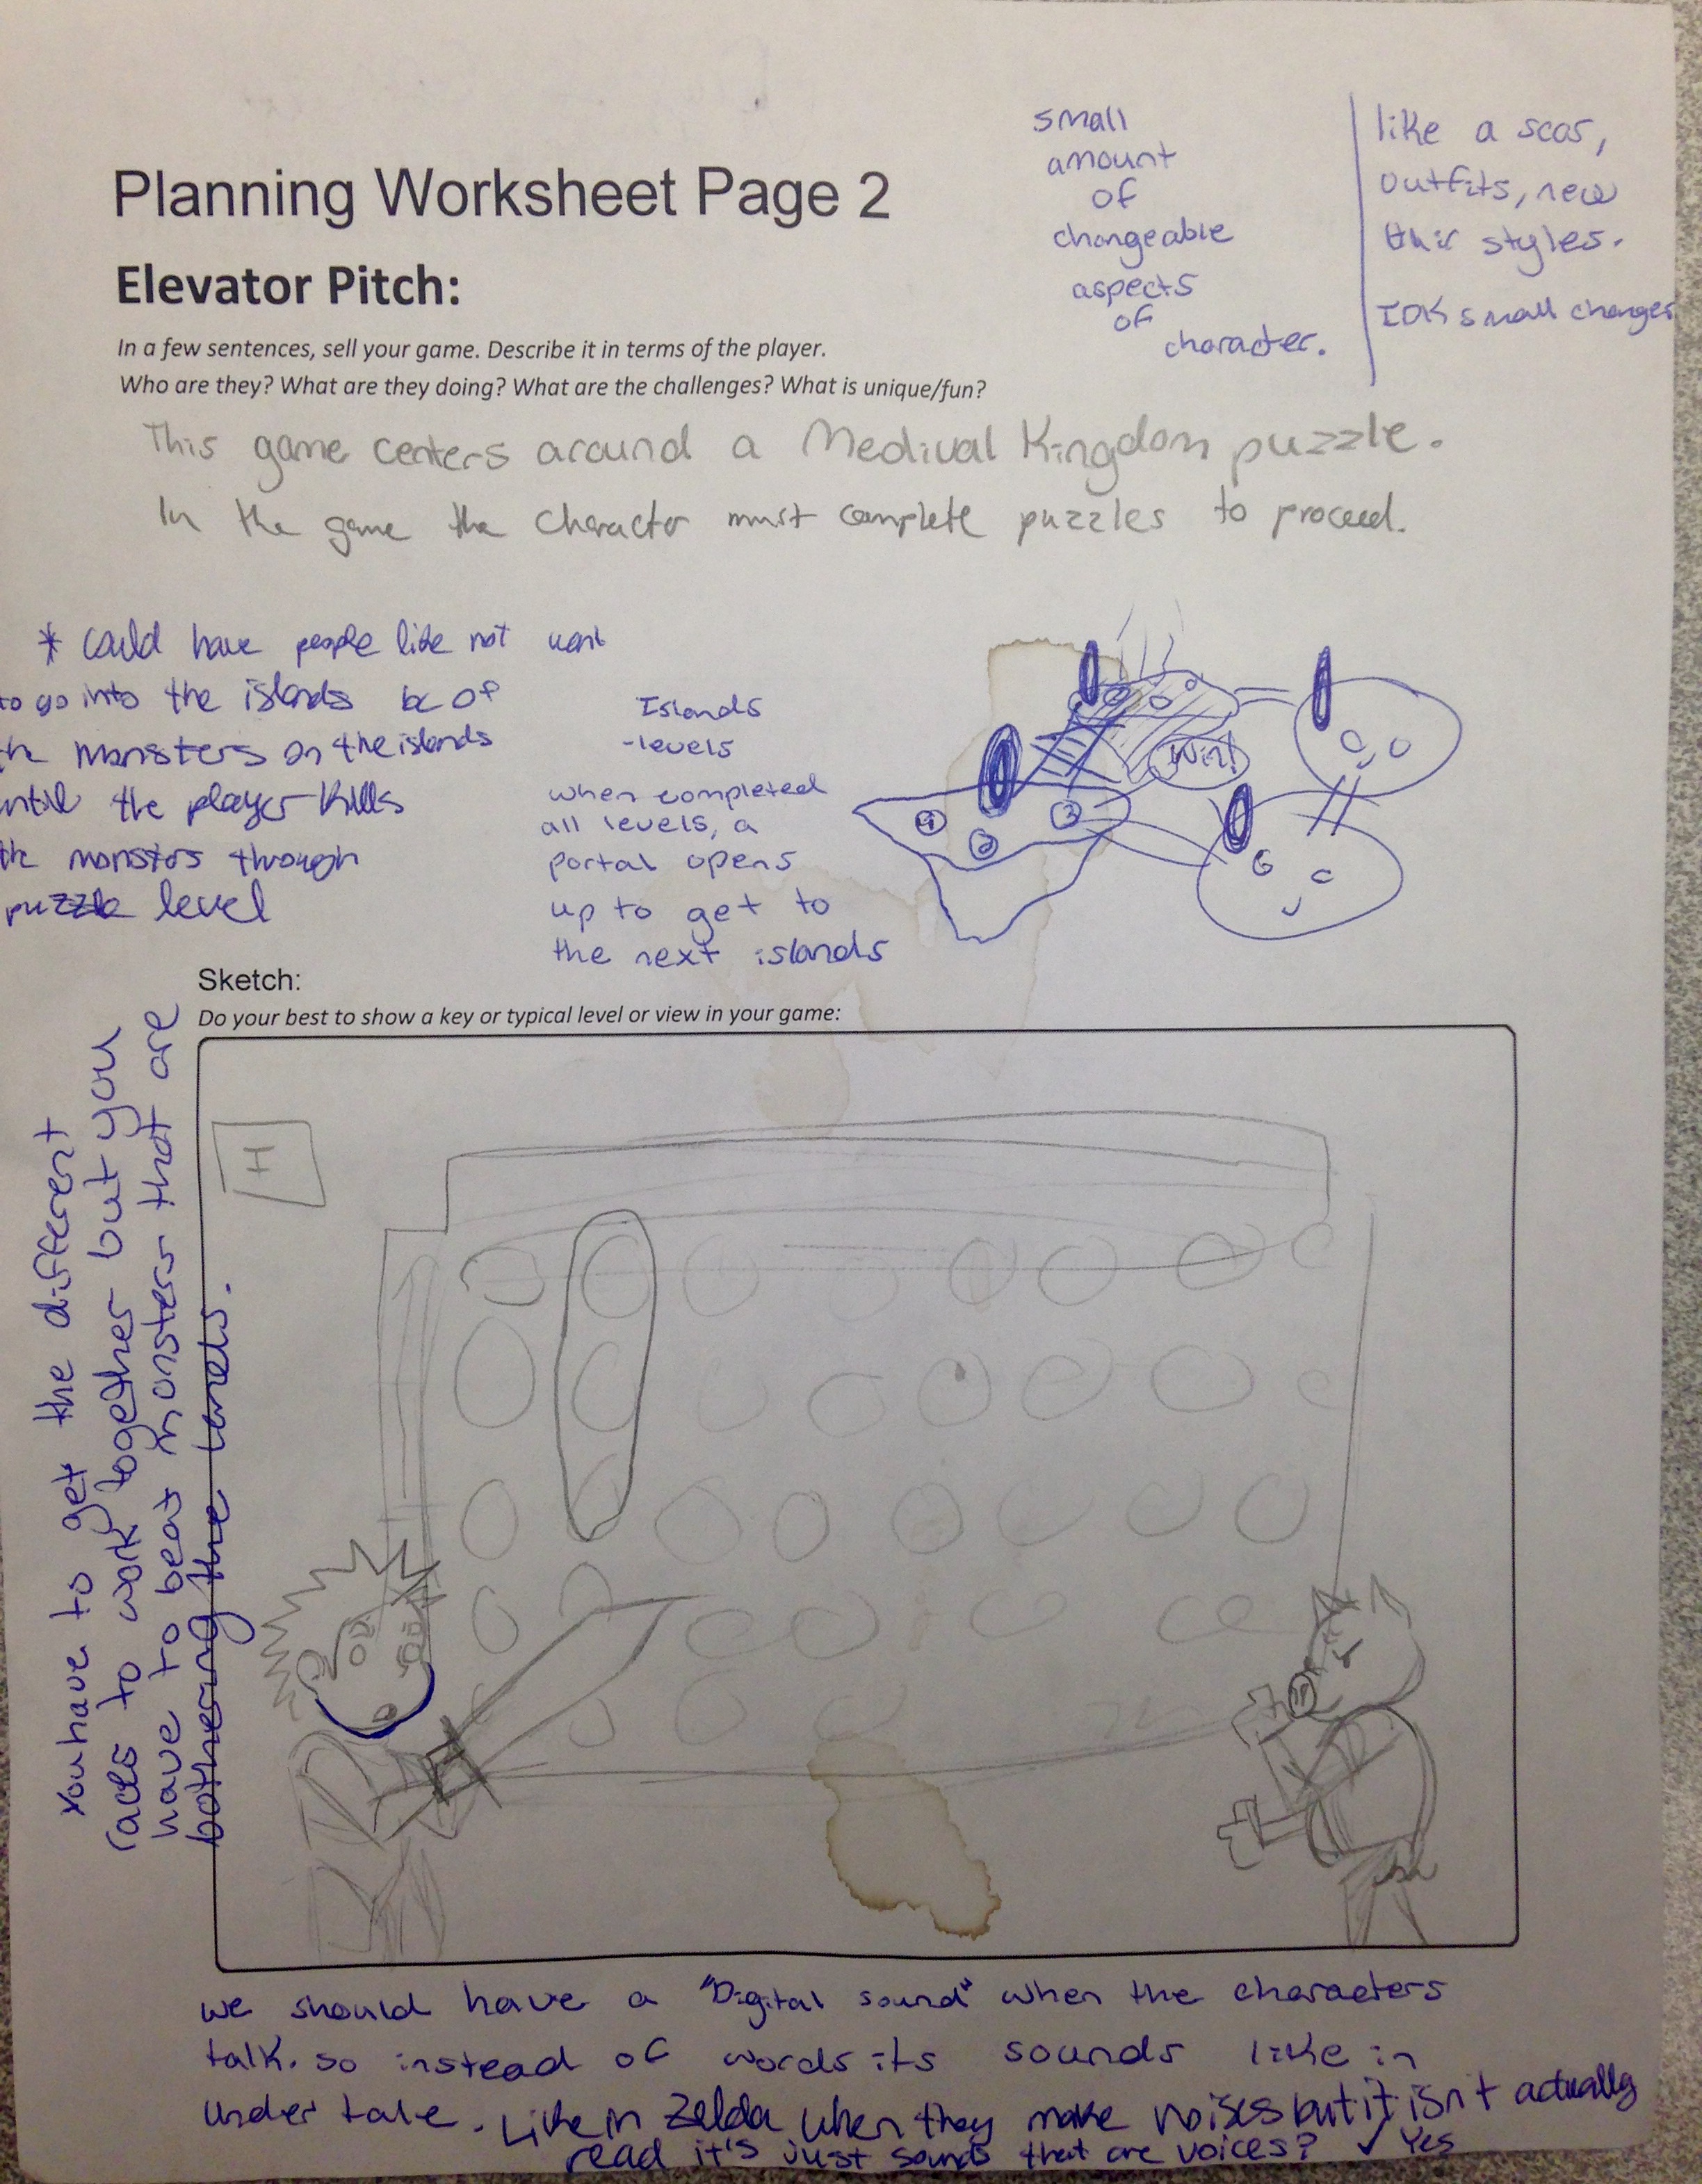 small
amount
of
changeable
aspects
of
character.
like a scar,
outfits, new
styles.
IDK small changes
Planning Worksheet Page 2
Elevator Pitch:
In a few sentences, sell your game. Describe it in terms of the player.
Who are they? What are they doing? What are the challenges? What is unique/fun?
This game centers around a Medival Kingdom puzzle.
In the game the charactor must complete puzzles to proceed.
* Could have people like not want
to go into the islands bc of
the monsters on the islands
until the player kills
the monstors through
puzzle level
Islands
-levels
when completed
all levels, a
portal opens
up to get to
the next islands
Win!
Sketch:
Do your best to show a key or typical level or view in your game:
You have to get the different
races to work together but you
have to beat monsters that are
bothering the lands.
H
we should have a "Digital sound" when the characters
talk. so instead of words its sounds like in
under tale. Like in Zelda when they make noises but it isn't actually
read it's just sounds that are voices? ✓ Yes